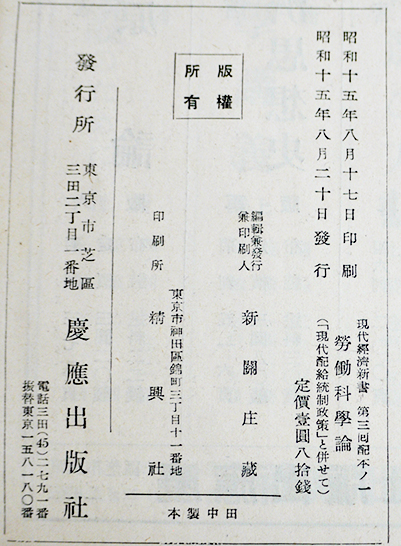 昭和十五年八月十七日印刷
昭和十五年八月二十日發行
現代經濟新書 第三回配本ノ一
勞働科學論
(「現代配給統制政策」と併せて)
定價壹圓八拾錢
版權
所有
編輯兼發行
兼印刷人
新關庄藏
東京市神田區錦町三丁目十一番地
印刷所 精興社
田中製本
發行所
東京市芝區
三田二丁目一番地
慶應出版社
電話三田(45)二七九一番
振替東京一五八一八〇番